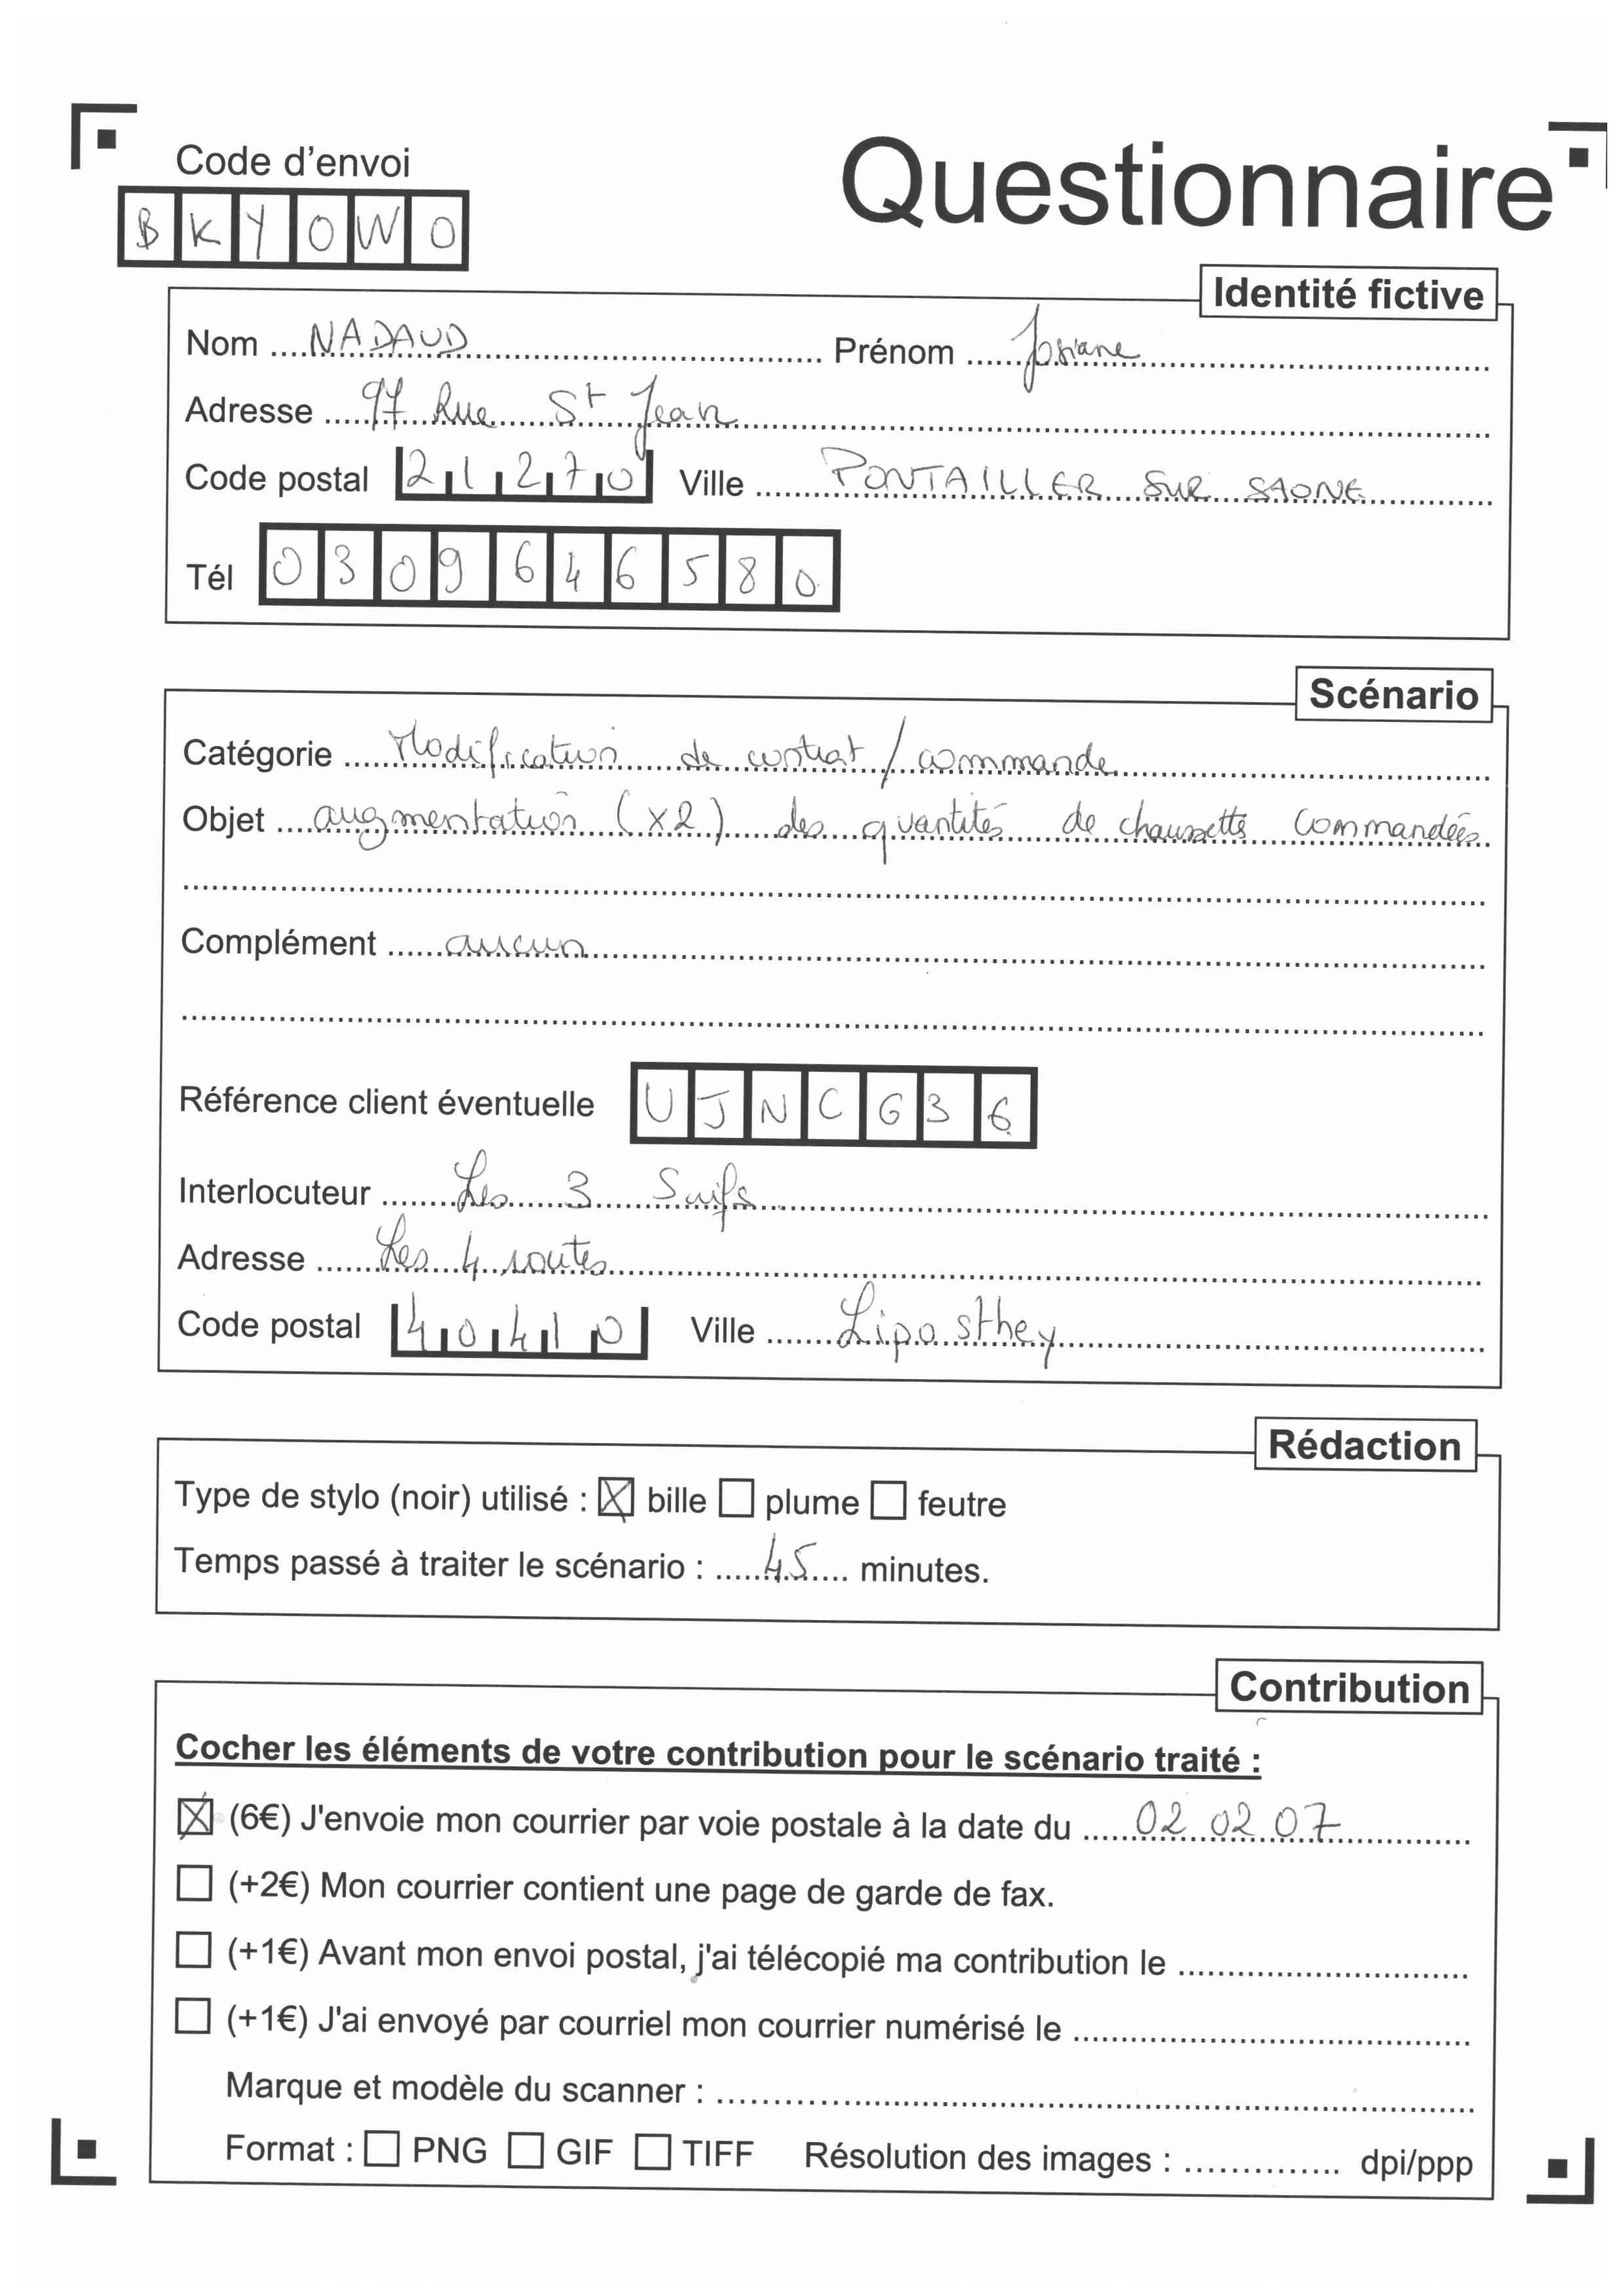 Code d'envoi
Questionnaire
BKYOWO
Identité fictive
Nom NADAUD Prénom Josiane
Adresse 97 Rue St Jean
Code postal 21270 Ville PONTAILLER SUR SAONE
Tél 0309646580
Scénario
Catégorie Modification de contrat / commande
Objet augmentation (x2) des quantités de chaussettes commandées
Complément aucun
Référence client éventuelle UJNCG36
Interlocuteur Les 3 Suifs
Adresse Les 4 routes
Code postal 40410 Ville Liposthey
Rédaction
Type de stylo (noir) utilisé : ☒ bille ☐ plume ☐ feutre
Temps passé à traiter le scénario : 45 minutes.
Contribution
Cocher les éléments de votre contribution pour le scénario traité :
☒ (6€) J'envoie mon courrier par voie postale à la date du 02 02 07
☐ (+2€) Mon courrier contient une page de garde de fax.
☐ (+1€) Avant mon envoi postal, j'ai télécopié ma contribution le
☐ (+1€) J'ai envoyé par courriel mon courrier numérisé le
Marque et modèle du scanner :
Format : ☐ PNG ☐ GIF ☐ TIFF Résolution des images : dpi/ppp